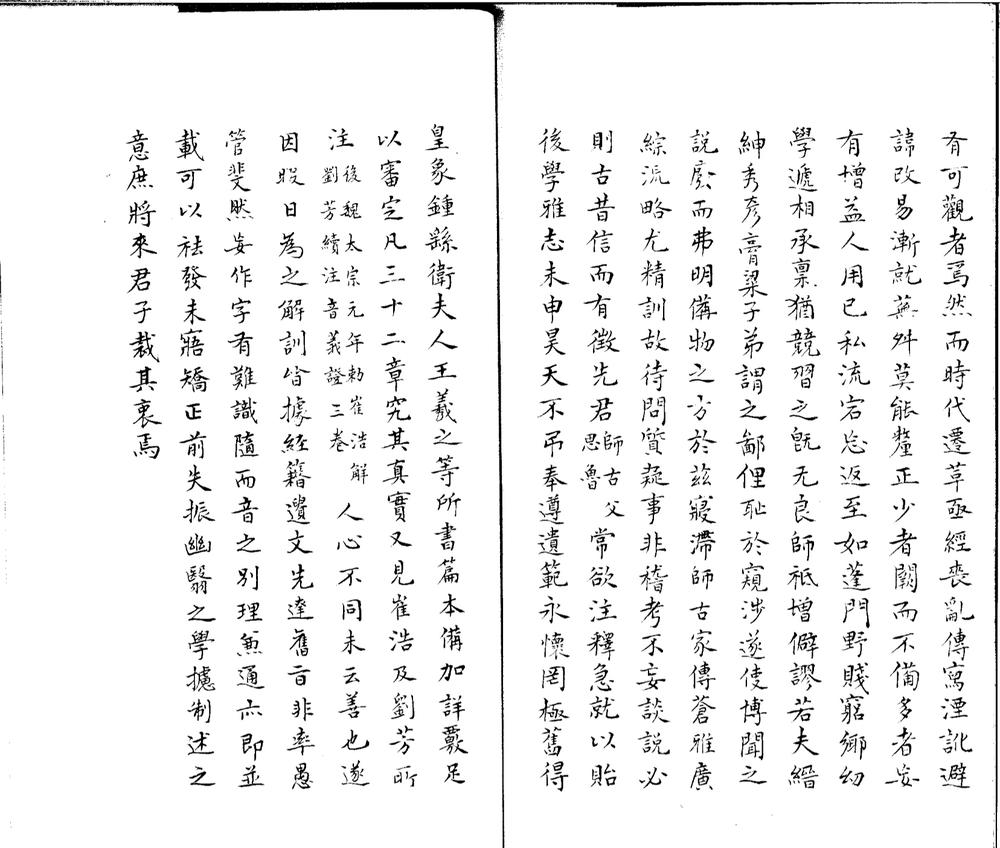 有可觀者焉然而時代遷革亟經喪亂傳寫湮訛避
諱改易漸就蕪舛莫能釐正少者闕而不備多者妄
有增益人用己私流宕忘返至如蓬門野賤窮鄉幼
學遞相承禀猶競習之既无良師祇增僻謬若夫縉
紳秀彥膏粱子弟謂之鄙俚恥於窺涉遂使博聞之
說廢而弗明備物之方於茲寢滯師古家傳蒼雅廣
綜流略尤精訓故待問質疑事非稽考不妄談說必
則古昔信而有徵先君師古父思魯常欲注釋急就以貽
後學雅志未申昊天不弔奉遵遺範永懷罔極舊得
皇象鍾繇衛夫人王羲之等所書篇本備加詳覈足
以審定凡三十二章究其真實又見崔浩及劉芳所
注後魏太宗元年勅崔浩解劉芳續注音義證三卷人心不同未云善也遂
因暇日為之解訓皆據經籍遺文先達舊旨非率愚
管斐然妄作字有難識隨而音之別理兼通亦即並
載可以祛發未寤矯正前失振幽翳之學攄制述之
意庶將來君子裁其衷焉